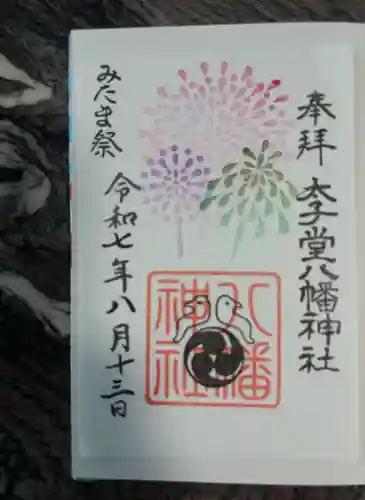 奉拝
太子堂八幡神社
八幡
神社
みたま祭
令和七年八月十三日